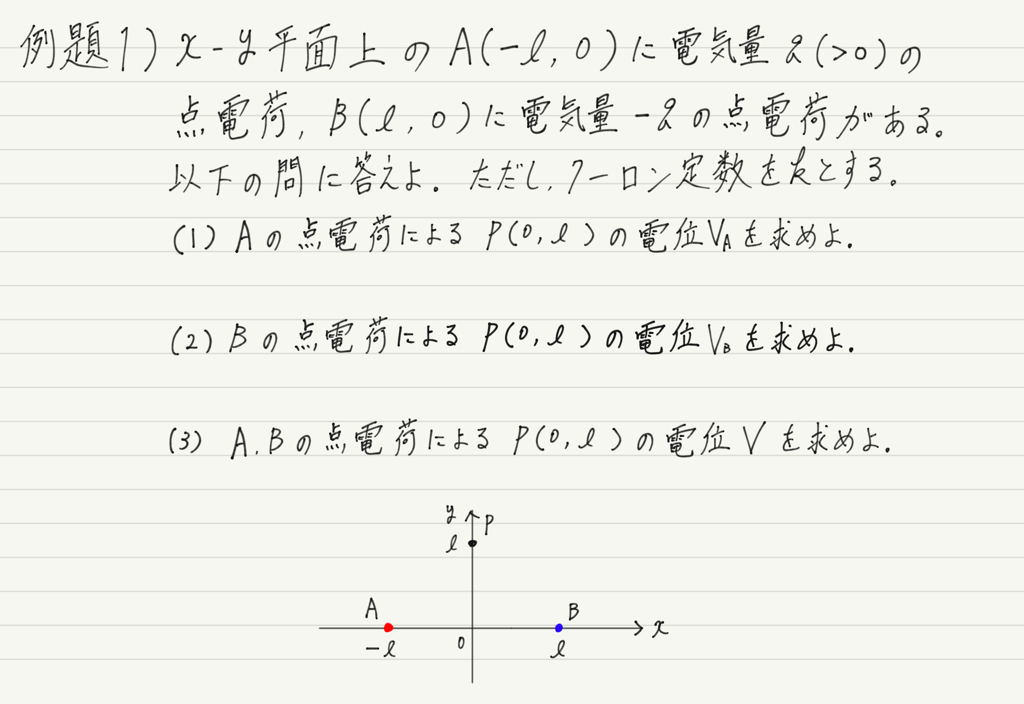 例題1) x-y平面上のA(-l, 0)に電気量q(>0)の
点電荷, B(l, 0)に電気量-qの点電荷がある。
以下の問に答えよ. ただし, クーロン定数をkとする。
(1) Aの点電荷によるP(0, l)の電位V_Aを求めよ.
(2) Bの点電荷によるP(0, l)の電位V_Bを求めよ.
(3) A, Bの点電荷によるP(0, l)の電位Vを求めよ.
y P
l
A B
x
-l 0 l